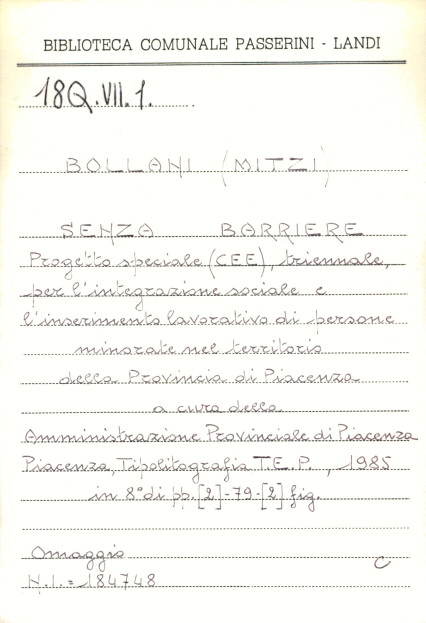 BIBLIOTECA COMUNALE PASSERINI - LANDI
18Q.VII.1.
BOLLANI (MITZI)
SENZA BARRIERE
Progetto speciale (CEE), triennale,
per l'integrazione sociale e
l'inserimento lavorativo di persone
minorate nel territorio
della Provincia di Piacenza
a cura della
Amministrazione Provinciale di Piacenza
Piacenza, Tipolitografia T.E.P., 1985
in 8° di pp. [2]-79-[2] fig.
Omaggio
C
N.I.= 184748